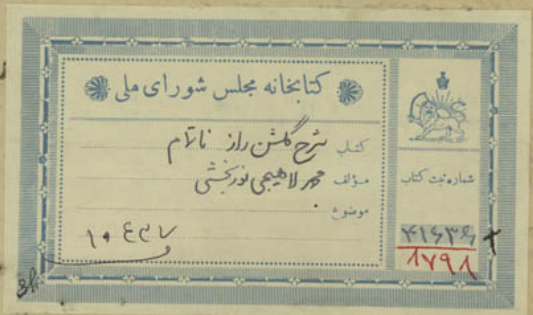 کتابخانه مجلس شورای ملی
کتاب شرح گلشن راز ناتمام
مؤلف محمد لاهیجی نوربخشی
موضوع
شماره ثبت کتاب
۱۷۹۸